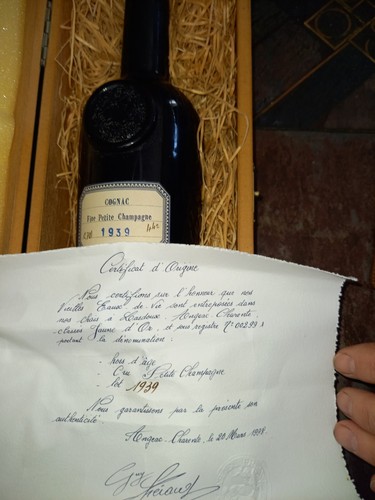 COGNAC
Fine Petite Champagne
1939
Certificat d'Origine
Nous certifions sur l'honneur que nos
Vieilles Eaux de Vie sont entreposées dans
nos chais à Angeac Charente,
classés Jaune d'Or, et sous registre N° 00299
portant la dénomination :
- hors d'âge
- Cru Petite Champagne
- lot 1939
Nous garantissons par la présente son
authenticité.
Angeac Charente, le 20 Mars
Guy